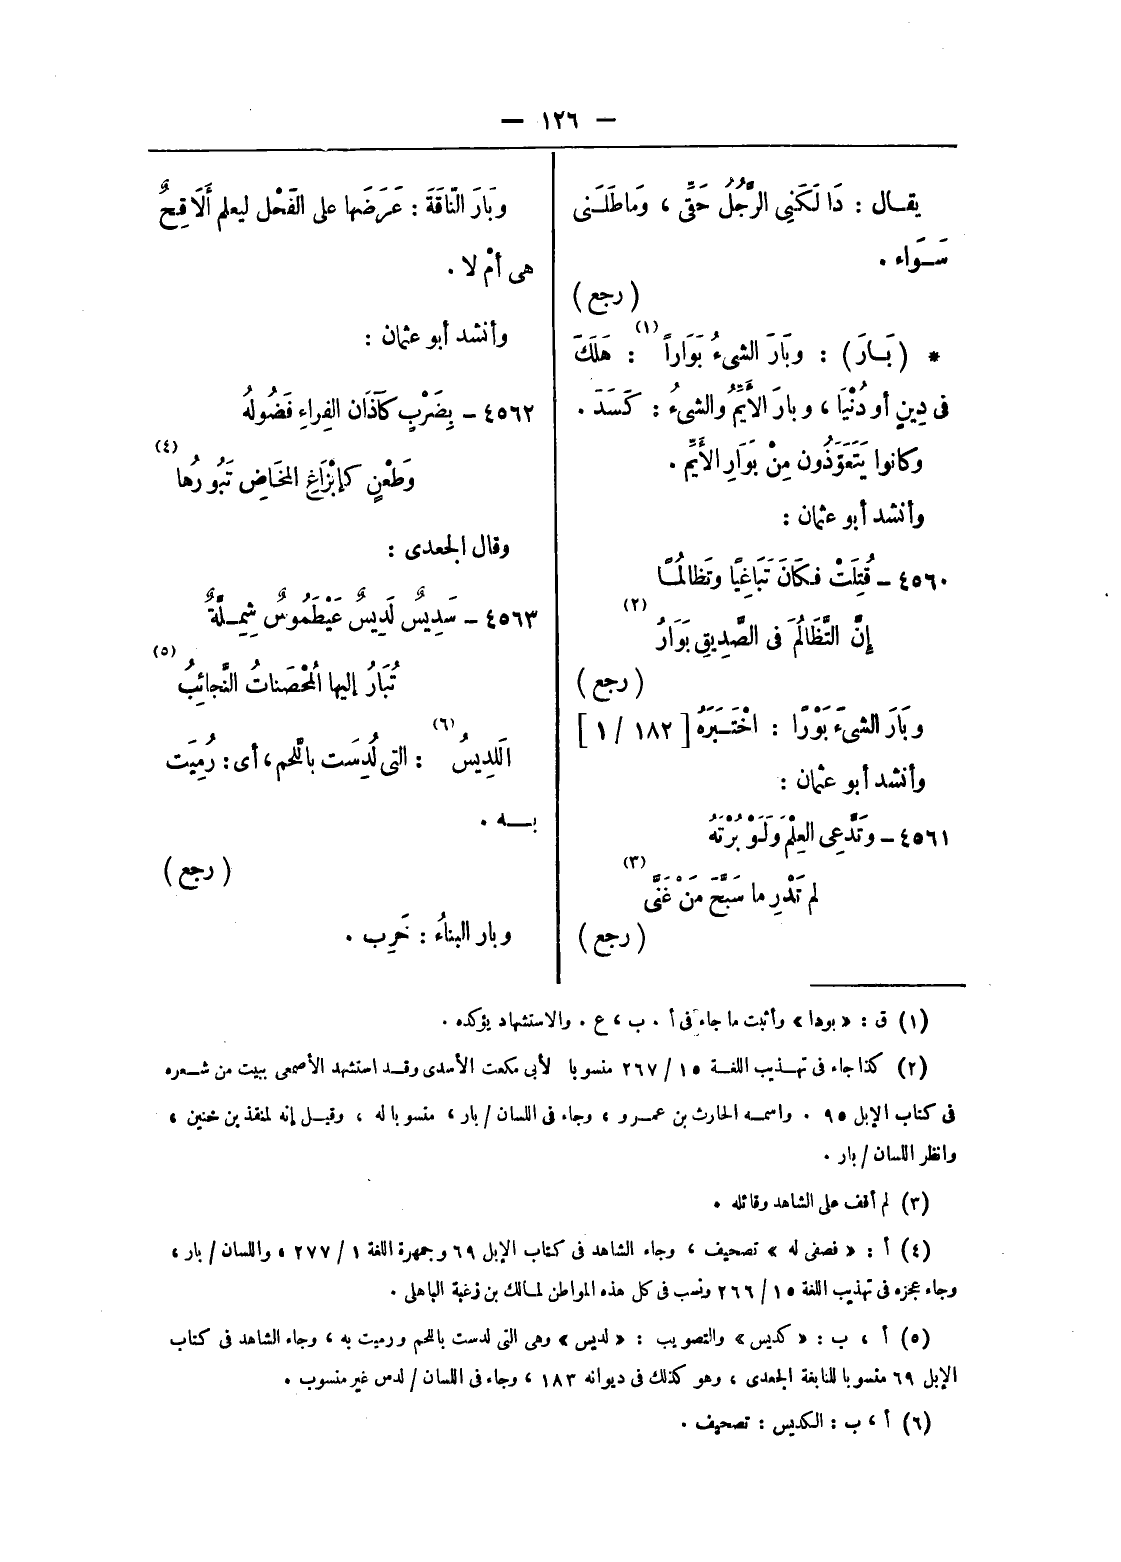 — ١٢٦ —
يقـال : دَا لَكَنِي الرَّجُلُ حَقِّى ، وَمَا طَلَنِى
سَـوَاء .
( رجع )
* ( بَـارَ ) : وبَارَ الشىءُ بَوَاراً (١) : هَلَكَ
فى دِينٍ أو دُنْيَا ، وبارَ الأَيِّمُ والشىءُ : كَسَدَ .
وكانوا يَتَعَوَّذُون مِنْ بَوَارِ الأَيِّم .
وأنشد أبو عثمان :
٤٥٦٠ ـ قُتِلَتْ فكَانَ تَبَاغِيًا وتَظالُمًـا
إنَّ التَّظَالُمَ فى الصَّدِيقِ بَوَارُ (٢)
( رجع )
وبَارَ الشىءَ بَوْرًا : اخْتَـبَرَهُ [ ١٨٢ / ١ ]
وأنشد أبو عثمان :
٤٥٦١ ـ وتَدَّعِى العِلْمَ وَلَوْ بُرْتَهُ
لم تَدْرِ ما سَبَّحَ مَنْ غَنَّى (٣)
( رجع )
وبَارَ النَّاقَةَ : عَرَضَها على الفَحْل ليعلم أَلَاقِحٌ
هى أمْ لا .
وأنشد أبو عثمان :
٤٥٦٢ ـ بِضَرْبٍ كآذَان الفِراءِ فُضُولُهُ
وَطَعْنٍ كإبْزَاغِ المَخَاضِ تَبُورُها (٤)
وقال الجعدى :
٤٥٦٣ ـ سَدِيسٌ لَدِيسٌ عَيْطَمُوسٌ شِمِـلَّةٌ
تُبَارُ إليها المُحْصَناتُ النَّجائِبُ (٥)
اللَدِيسُ (٦) : التى لُدِسَت باللَّحم ، أى : رُمِيَت
بـــه .
( رجع )
وبار البناءُ : خَرِب .
(١) ق : « بورا » وأثبت ما جاء فى أ . ب ، ع . والاستشهاد يؤكده .
(٢) كذا جاء فى تهـذيب اللغـة ١٥ / ٢٦٧ منسوبا لأبى مكعت الأسدى وقـد استشهد الأصمعى ببيت من شـعره
فى كتاب الإبل ٩٥ . واسمـه الحارث بن عمـرو ، وجاء فى اللسان / بار ، منسوبا له ، وقيـل إنه لمنقذ بن خنين ،
وانظر اللسان / بار .
(٣) لم أقف على الشاهد وقائله .
(٤) أ : « فصفى له » تصحيف ، وجاء الشاهد فى كتاب الإبل ٦٩ وجمهرة اللغة ١ / ٢٧٧ ، واللسان / بار ،
وجاء عجزه فى تهذيب اللغة ١٥ / ٢٦٦ ونسب فى كل هذه المواطن لمـالك بن زغبة الباهلى .
(٥) أ ، ب : « كديس » والتصويب : « لديس » وهى التى لدست باللحم ورميت به ، وجاء الشاهد فى كتاب
الإبل ٦٩ منسوبا للنابغة الجعدى ، وهو كذلك فى ديوانه ١٨٣ ، وجاء فى اللسان / لدس غير منسوب .
(٦) أ ، ب : الكديس : تصحيف .